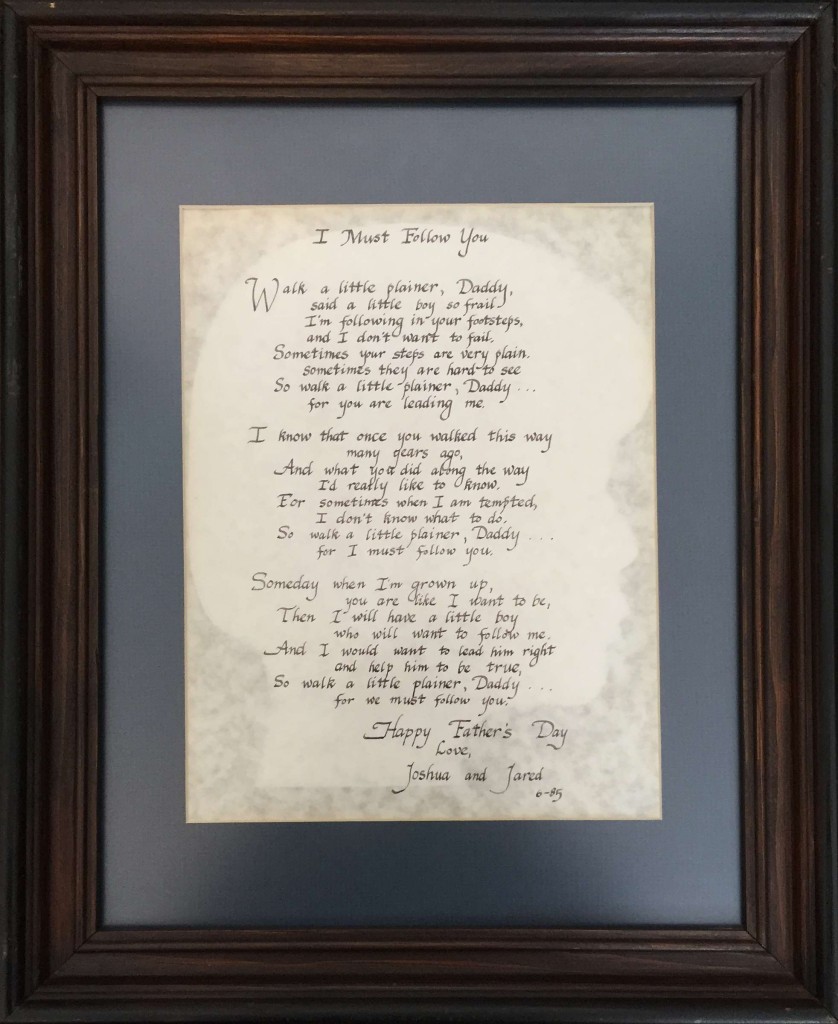 I Must Follow You
Walk a little plainer, Daddy,
said a little boy so frail
I'm following in your footsteps,
and I don't want to fail.
Sometimes your steps are very plain.
sometimes they are hard to see
So walk a little plainer, Daddy ...
for you are leading me.
I know that once you walked this way
many years ago,
And what you did along the way
I'd really like to know.
For sometimes when I am tempted,
I don't know what to do.
So walk a little plainer, Daddy ...
for I must follow you.
Someday when I'm grown up,
you are like I want to be,
Then I will have a little boy
who will want to follow me.
And I would want to lead him right
and help him to be true,
So walk a little plainer, Daddy ...
for we must follow you.
Happy Father's Day
Love,
Joshua and Jared
6-85